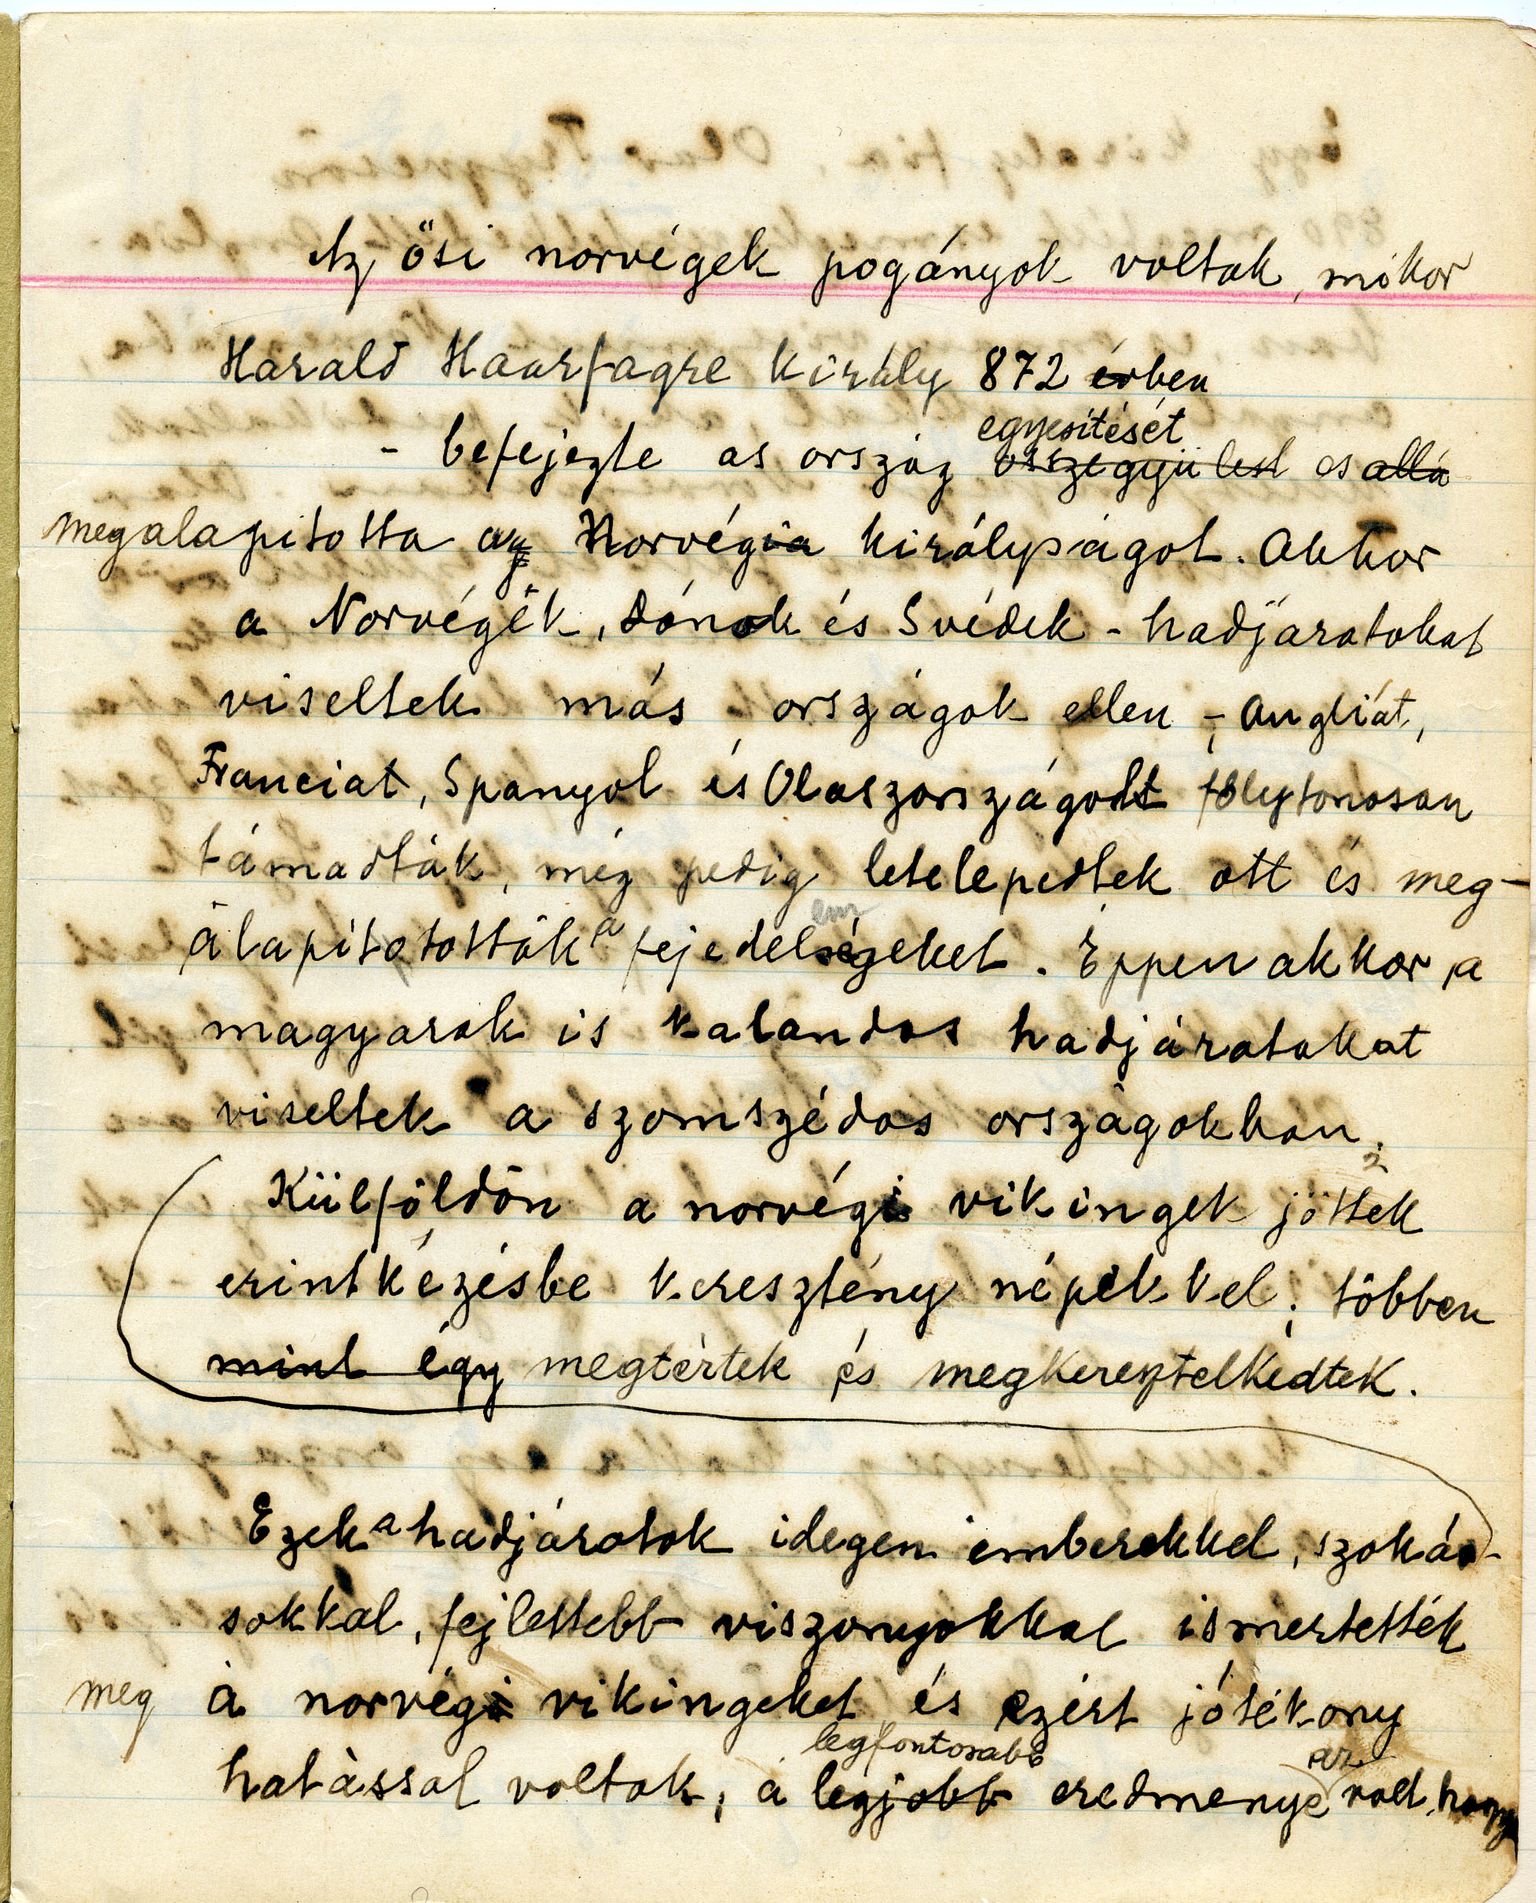 Az ősi norvégek pogányok voltak, mikor
Harald Haarfagre király 872 érben
egyesítését
- befejezte as ország összegyülest es allá
megalapitotta az Norvégia királyságot. Akkor
a Norvégek, dánok és Svédek - hadjáratokat
viseltek más országok ellen, - Angliát,
Franciat, Spanyol és Olaszországodt folytonosan
támadták, még pedig letelepedtek ott és meg-
em
álapitotották a fejedelségeket. Éppen akkor, a
magyarok is kalandos hadjáratokat
viseltek a szomszédos országokban.
2
Külföldön a norvégi vikingek jöttek
erintkézésbe keresztény népekkel; többen
mint égy megtértek és megkeresztelkedtek.
Ezek a hadjáratok idegen emberekkel, szoká-
sokkal, fejlettebb viszonyokkal ismertették
meg a norvégi vikingeket és ezért jótékony
legfontosabb az
hatással voltak, a legjobb eredmenye volt, hogy